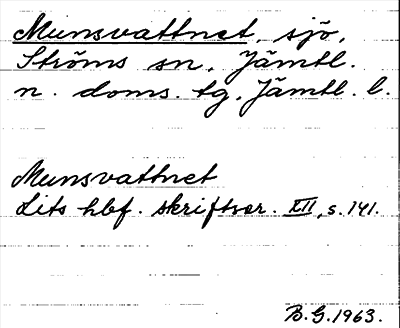 Munsvattnet, sjö,
Ströms sn, Jämtl.
n. doms. tg, Jämtl. l.
Munsvattnet
Lits hbf. skriftser. XII, s. 141.
B.G. 1963.